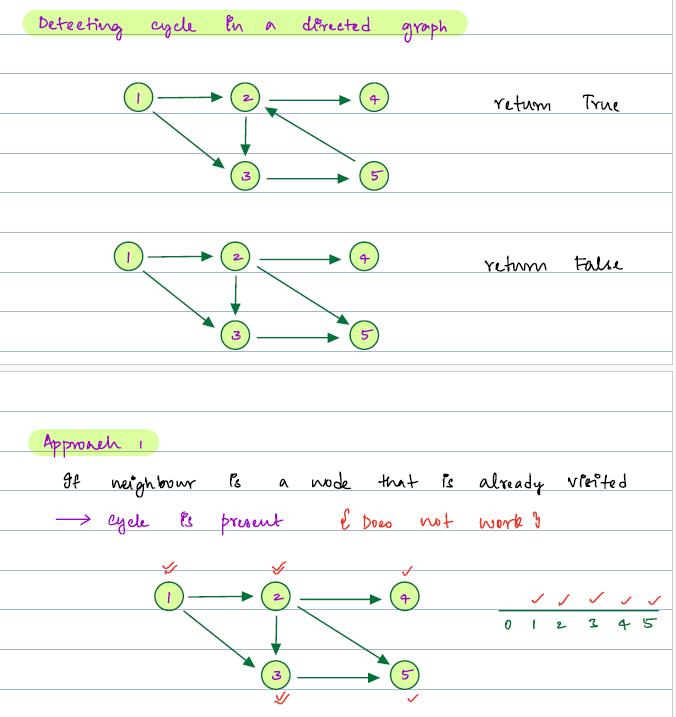 Detecting cycle in a directed graph
1 2 4
return True
3 5
1 2 4
return False
3 5
Approach 1
If neighbour is a node that is already visited
→ cycle is present { Does not work }
1 2 4
0 1 2 3 4 5
3 5